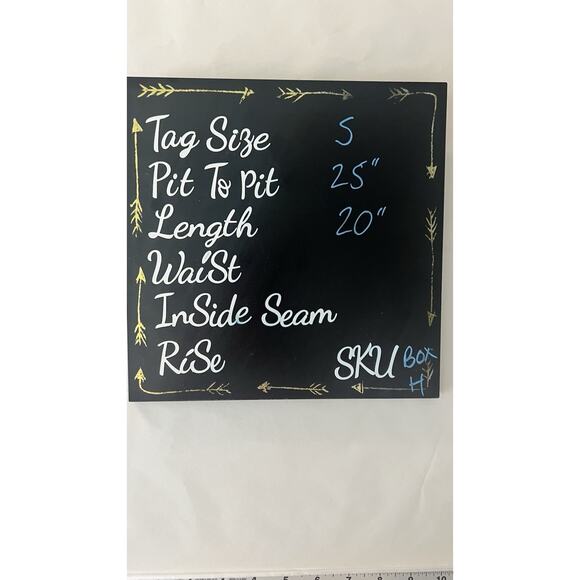 Tag Size S
Pit To Pit 25"
Length 20"
Waist
InSide Seam
RiSe
SKU BOX
H
4 5 6 7 8 9 10